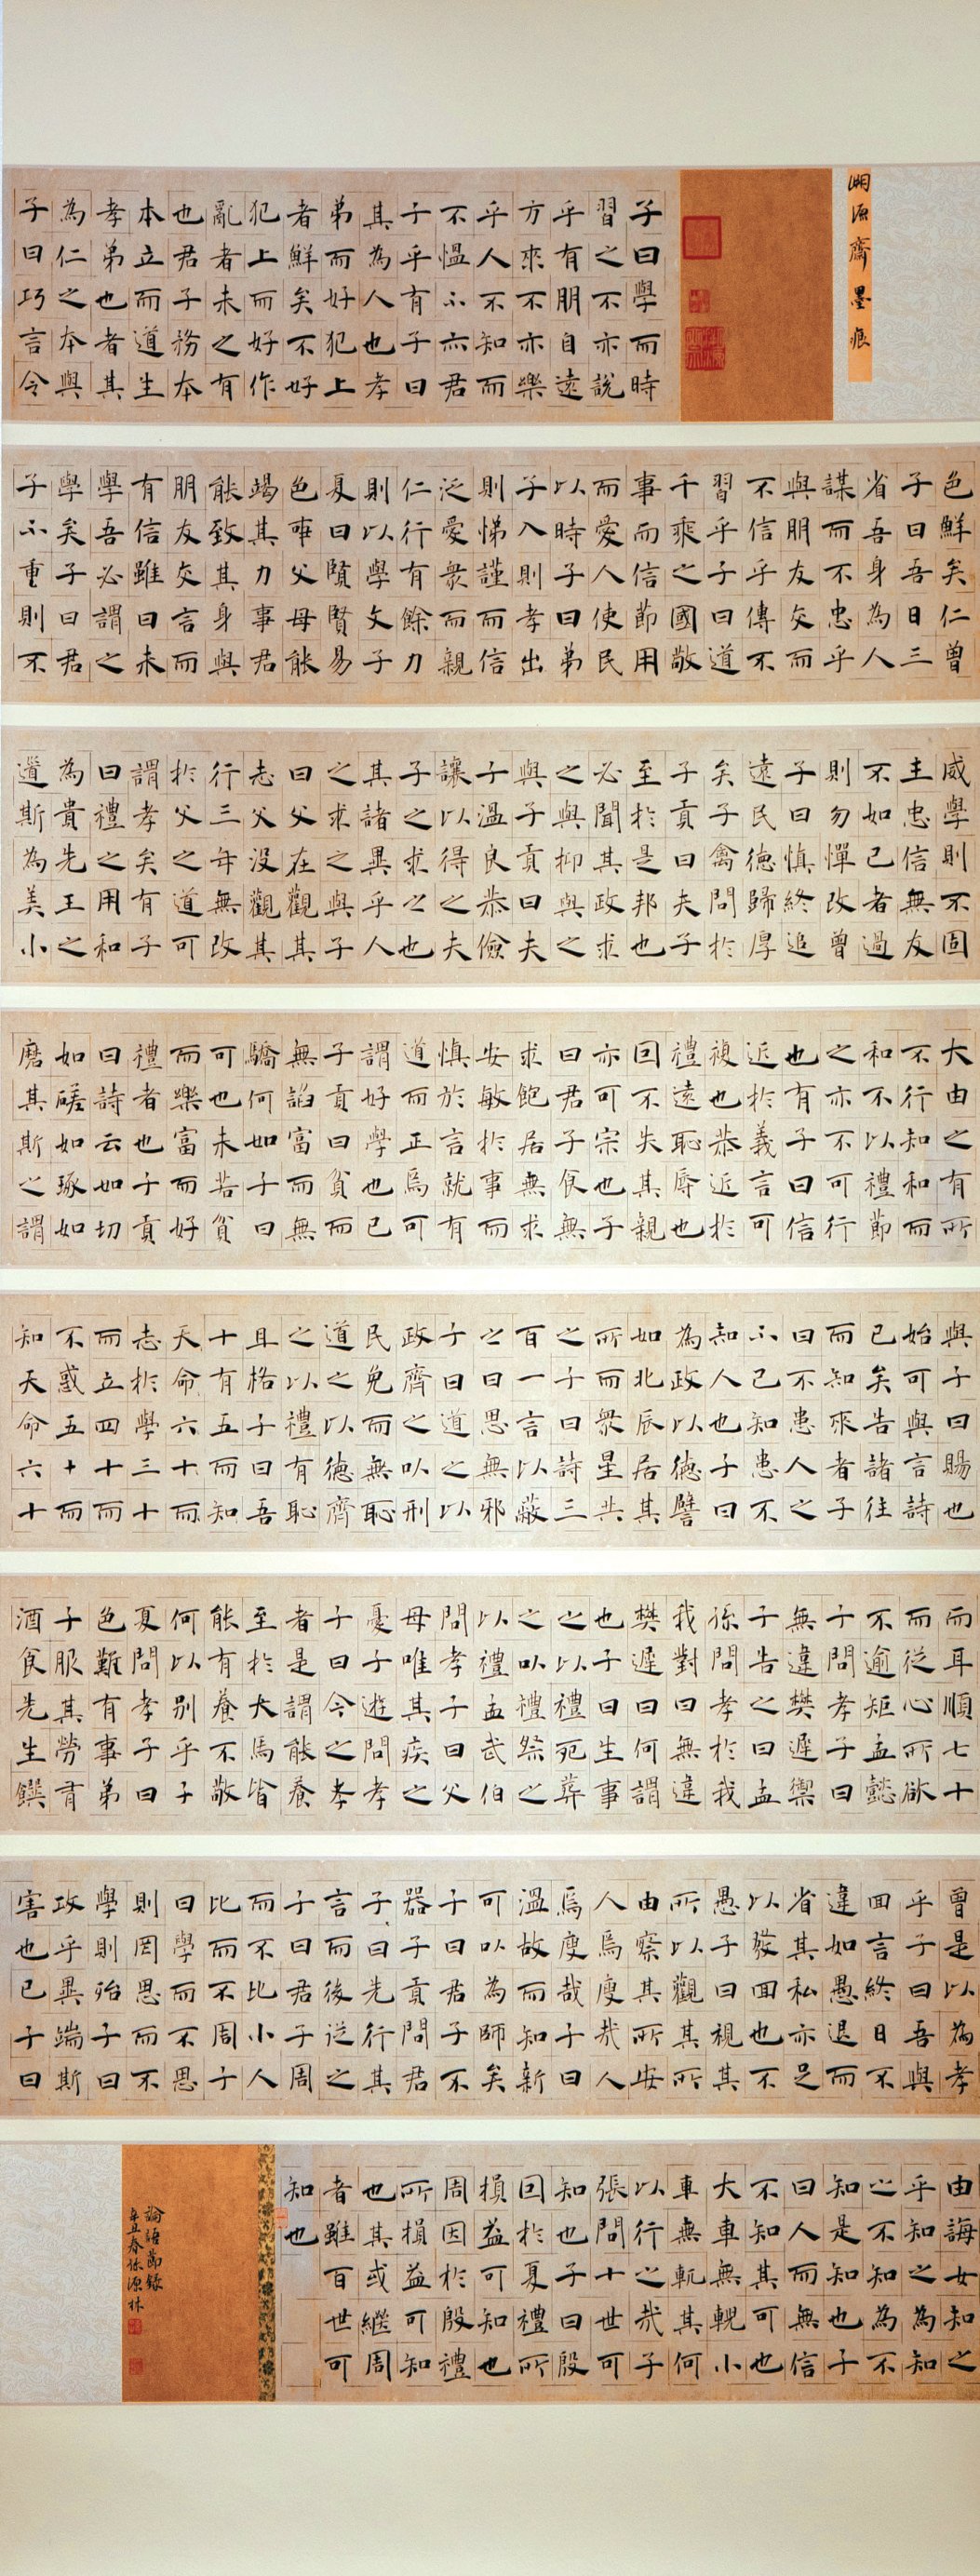 源齋 墨痕
子曰學而時
習之不亦說
乎有朋自遠
方來不亦樂
乎人不知而
不慍不亦君
子乎有子曰
其為人也孝
弟而好犯上
者鮮矣不好
犯上而好作
亂者未之有
也君子務本
本立而道生
孝弟也者其
為仁之本與
子曰巧言令
色鮮矣仁曾
子曰吾日三
省吾身為人
謀而不忠乎
與朋友交而
不信乎傳不
習乎子曰道
千乘之國敬
事而信節用
而愛人使民
以時子曰弟
子入則孝出
則悌謹而信
泛愛眾而親
仁行有餘力
則以學文子
夏曰賢賢易
色事父母能
竭其力事君
能致其身與
朋友交言而
有信雖曰未
學吾必謂之
學矣子曰君
子不重則不
威學則不固
主忠信無友
不如己者過
則勿憚改曾
子曰慎終追
遠民德歸厚
矣子禽問於
子貢曰夫子
至於是邦也
必聞其政求
之與抑與之
與子貢曰夫
子溫良恭儉
讓以得之夫
子之求之也
其諸異乎人
之求之與子
曰父在觀其
志父沒觀其
行三年無改
於父之道可
謂孝矣有子
曰禮之用和
為貴先王之
道斯為美小
大由之有所
不行知和而
和不以禮節
之亦不可行
也有子曰信
近於義言可
複也恭近於
禮遠恥辱也
因不失其親
亦可宗也子
曰君子食無
求飽居無求
安敏於事而
慎於言就有
道而正焉可
謂好學也已
子貢曰貧而
無諂富而無
驕何如子曰
可也未若貧
而樂富而好
禮者也子貢
曰詩云如切
如磋如琢如
磨其斯之謂
與子曰賜也
始可與言詩
已矣告諸往
而知來者子
曰不患人之
不己知患不
知人也子曰
為政以德譬
如北辰居其
所而眾星共
之子曰詩三
百一言以蔽
之曰思無邪
子曰道之以
政齊之以刑
民免而無恥
道之以德齊
之以禮有恥
且格子曰吾
十有五而知
天命六十而
志於學三十
而立四十而
不惑五十而
知天命六十
而耳順七十
而從心所欲
不逾矩孟懿
子問孝子曰
無違樊遲禦
子告之曰孟
孫問孝於我
我對曰無違
樊遲曰何謂
也子曰生事
之以禮死葬
之以禮祭之
以禮孟武伯
問孝子曰父
母唯其疾之
憂子遊問孝
子曰今之孝
者是謂能養
至於犬馬皆
能有養不敬
何以別乎子
夏問孝子曰
色難有事弟
子服其勞有
酒食先生饌
曾是以為孝
乎子曰吾與
回言終日不
違如愚退而
省其私亦足
以發回也不
愚子曰視其
所以觀其所
由察其所安
人焉廋哉人
焉廋哉子曰
溫故而知新
可以為師矣
子曰君子不
器子貢問君
子曰先行其
言而後從之
子曰君子周
而不比小人
比而不周子
曰學而不思
則罔思而不
學則殆子曰
攻乎異端斯
害也已子曰
由誨女知之
乎知之為知
之不知為不
知是知也子
曰人而無信
不知其可也
大車無輗小
車無軏其何
以行之哉子
張問十世可
知也子曰殷
因於夏禮所
損益可知也
周因於殷禮
所損益可知
也其或繼周
者雖百世可
知也
論語節錄
辛丑春孫源林